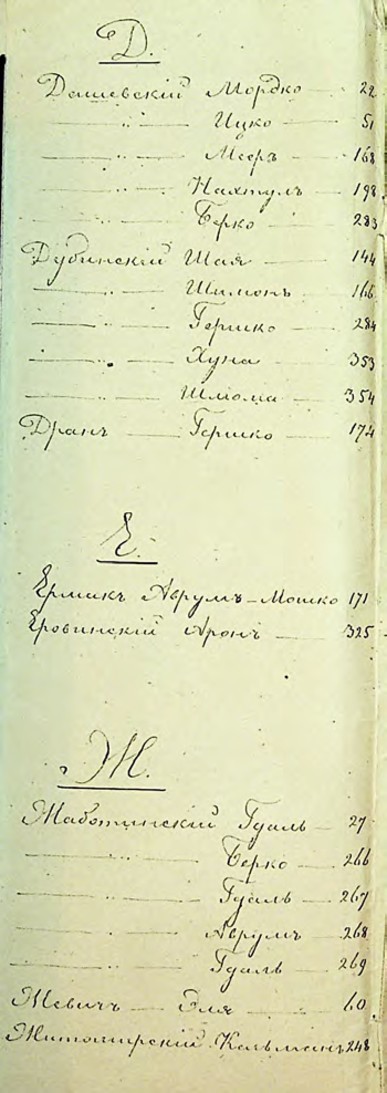 Д.
Дашевскій Мордко — 22
— " — Ицко — 51
— " — Мееръ — 168
— " — Нахтулъ — 198
— " — Берко — 283
Дубинскій Шая — 144
— " — Шимонъ — 166
— " — Гершко — 284
— " — Хуна — 353
— " — Шлома — 354
Дранъ — Гершко — 174
Е.
Ермакъ Аврумъ-Мошко 171
Еровинскій Аронъ — 325
Ж.
Жаботинскій Гдаль — 27
— " — Берко — 266
— " — Гдаль — 267
— " — Аврумъ — 268
— " — Гдаль — 269
Жевичъ — Эля — 60
Житомирскій Кальманъ 248